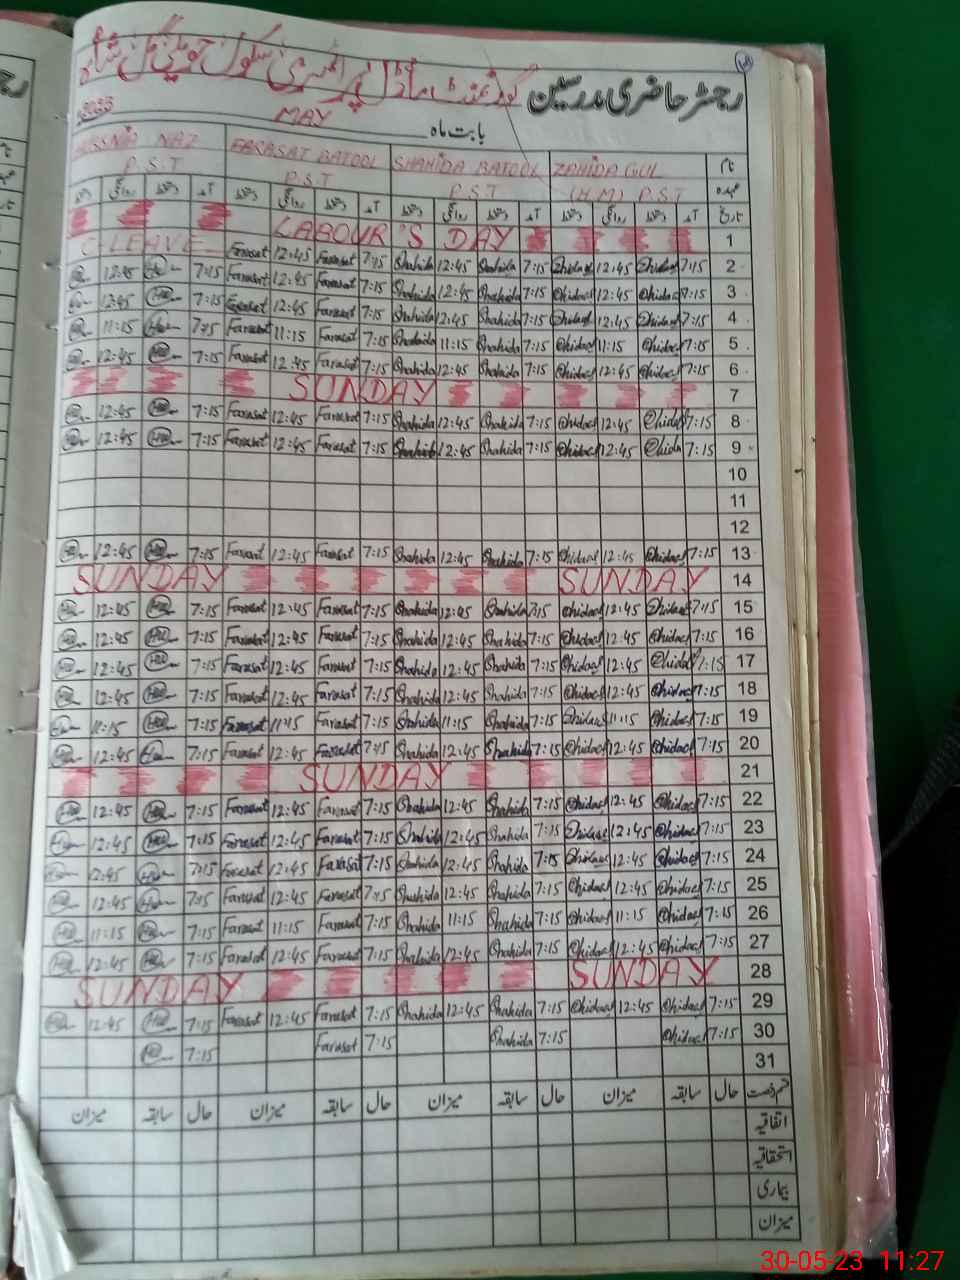 رجسٹر حاضری مدرسین گورنمنٹ ماڈل پرائمری سکول حویلی
بابت ماہ MAY 2023
HUSSNIA NAZ FARASAT BATOOL SHAHIDA BATOOL ZAHIDA GUL نام
P.S.T P.S.T P.S.T (H.M) P.S.T عہدہ
دستخط روانگی دستخط آمد دستخط روانگی دستخط آمد دستخط روانگی دستخط آمد دستخط روانگی دستخط آمد تاریخ
LABOUR'S DAY 1
C-LEAVE Farasat 12:45 Farasat 7:15 Shahida 12:45 Shahida 7:15 12:45 7:15 2
12:45 7:15 Farasat 12:45 Farasat 7:15 Shahida 12:45 Shahida 7:15 12:45 7:15 3
12:45 7:15 Farasat 12:45 Farasat 7:15 Shahida 12:45 Shahida 7:15 12:45 7:15 4
11:15 7:15 Farasat 11:15 Farasat 7:15 Shahida 11:15 Shahida 7:15 11:15 7:15 5
12:45 7:15 Farasat 12:45 Farasat 7:15 Shahida 12:45 Shahida 7:15 12:45 7:15 6
SUNDAY 7
12:45 7:15 Farasat 12:45 Farasat 7:15 Shahida 12:45 Shahida 7:15 12:45 7:15 8
12:45 7:15 Farasat 12:45 Farasat 7:15 Shahida 12:45 Shahida 7:15 12:45 7:15 9
10
11
12
12:45 7:15 Farasat 12:45 Farasat 7:15 Shahida 12:45 Shahida 7:15 12:45 7:15 13
SUNDAY SUNDAY 14
12:45 7:15 Farasat 12:45 Farasat 7:15 Shahida 12:45 Shahida 7:15 12:45 7:15 15
12:45 7:15 Farasat 12:45 Farasat 7:15 Shahida 12:45 Shahida 7:15 12:45 7:15 16
12:45 7:15 Farasat 12:45 Farasat 7:15 Shahida 12:45 Shahida 7:15 12:45 7:15 17
12:45 7:15 Farasat 12:45 Farasat 7:15 Shahida 12:45 Shahida 7:15 12:45 7:15 18
11:15 7:15 Farasat 11:15 Farasat 7:15 Shahida 11:15 Shahida 7:15 11:15 7:15 19
12:45 7:15 Farasat 12:45 Farasat 7:15 Shahida 12:45 Shahida 7:15 12:45 7:15 20
SUNDAY 21
12:45 7:15 Farasat 12:45 Farasat 7:15 Shahida 12:45 Shahida 7:15 12:45 7:15 22
12:45 7:15 Farasat 12:45 Farasat 7:15 Shahida 12:45 Shahida 7:15 12:45 7:15 23
12:45 7:15 Farasat 12:45 Farasat 7:15 Shahida 12:45 Shahida 7:15 12:45 7:15 24
12:45 7:15 Farasat 12:45 Farasat 7:15 Shahida 12:45 Shahida 7:15 12:45 7:15 25
11:15 7:15 Farasat 11:15 Farasat 7:15 Shahida 11:15 Shahida 7:15 11:15 7:15 26
12:45 7:15 Farasat 12:45 Farasat 7:15 Shahida 12:45 Shahida 7:15 12:45 7:15 27
SUNDAY SUNDAY 28
12:45 7:15 Farasat 12:45 Farasat 7:15 Shahida 12:45 Shahida 7:15 12:45 7:15 29
7:15 Farasat 7:15 Shahida 7:15 7:15 30
31
قسم رخصت حال سابقہ میزان حال سابقہ میزان حال سابقہ میزان حال سابقہ میزان
اتفاقیہ
استحقاقیہ
بیماری
میزان
30-05-23 11:27